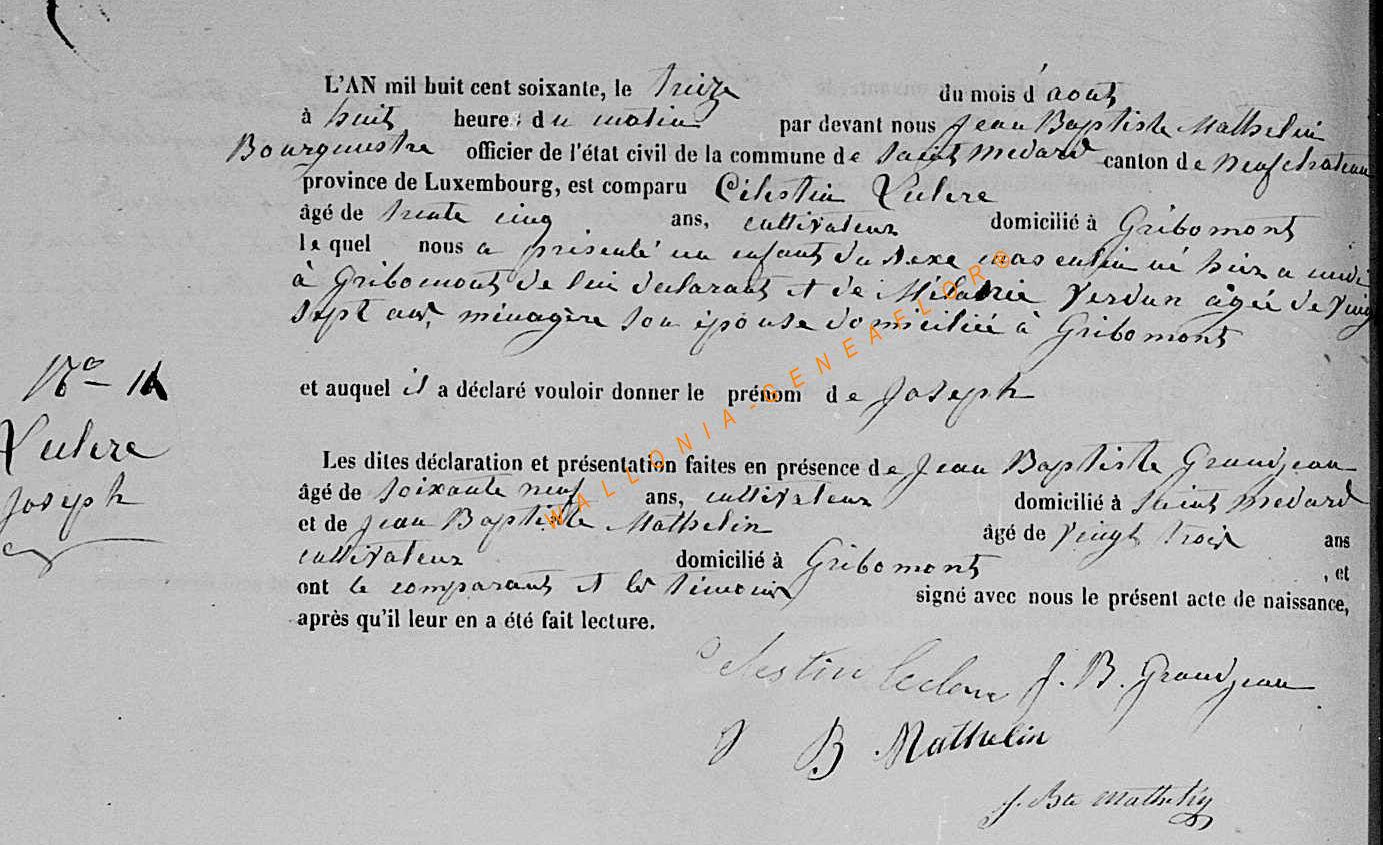 L'AN mil huit cent soixante, le treize du mois d'aout
à huit heures du matin par devant nous Jean Baptiste Mathelin
Bourgmestre officier de l'état civil de la commune de Saint Medard canton de Neufchateau
province de Luxembourg, est comparu Célestin Leclere
âgé de trente cinq ans, cultivateur domicilié à Gribomont
lequel nous a présenté un enfant du sexe masculin né hier a midi
à Gribomont de lui declarant et de Mélanie Verdun agée de Ving
sept ans, ménagère son épouse domiciliée à Gribomont
et auquel il a déclaré vouloir donner le prénom de Joseph
Les dites déclaration et présentation faites en présence de Jean Baptiste Grandjean
âgé de soixante neuf ans, cultivateur domicilié à Saint Medard
et de Jean Baptiste Mathelin âgé de Vingt trois ans
cultivateur domicilié à Gribomont , et
ont le comparant et les témoins signé avec nous le présent acte de naissance,
après qu'il leur en a été fait lecture.
No 14
Leclere
Joseph
Celestin Leclere J. B. Grandjean
J B Mathelin
J. Bte Mathelin
WALLONIA-GENEAFLOR®